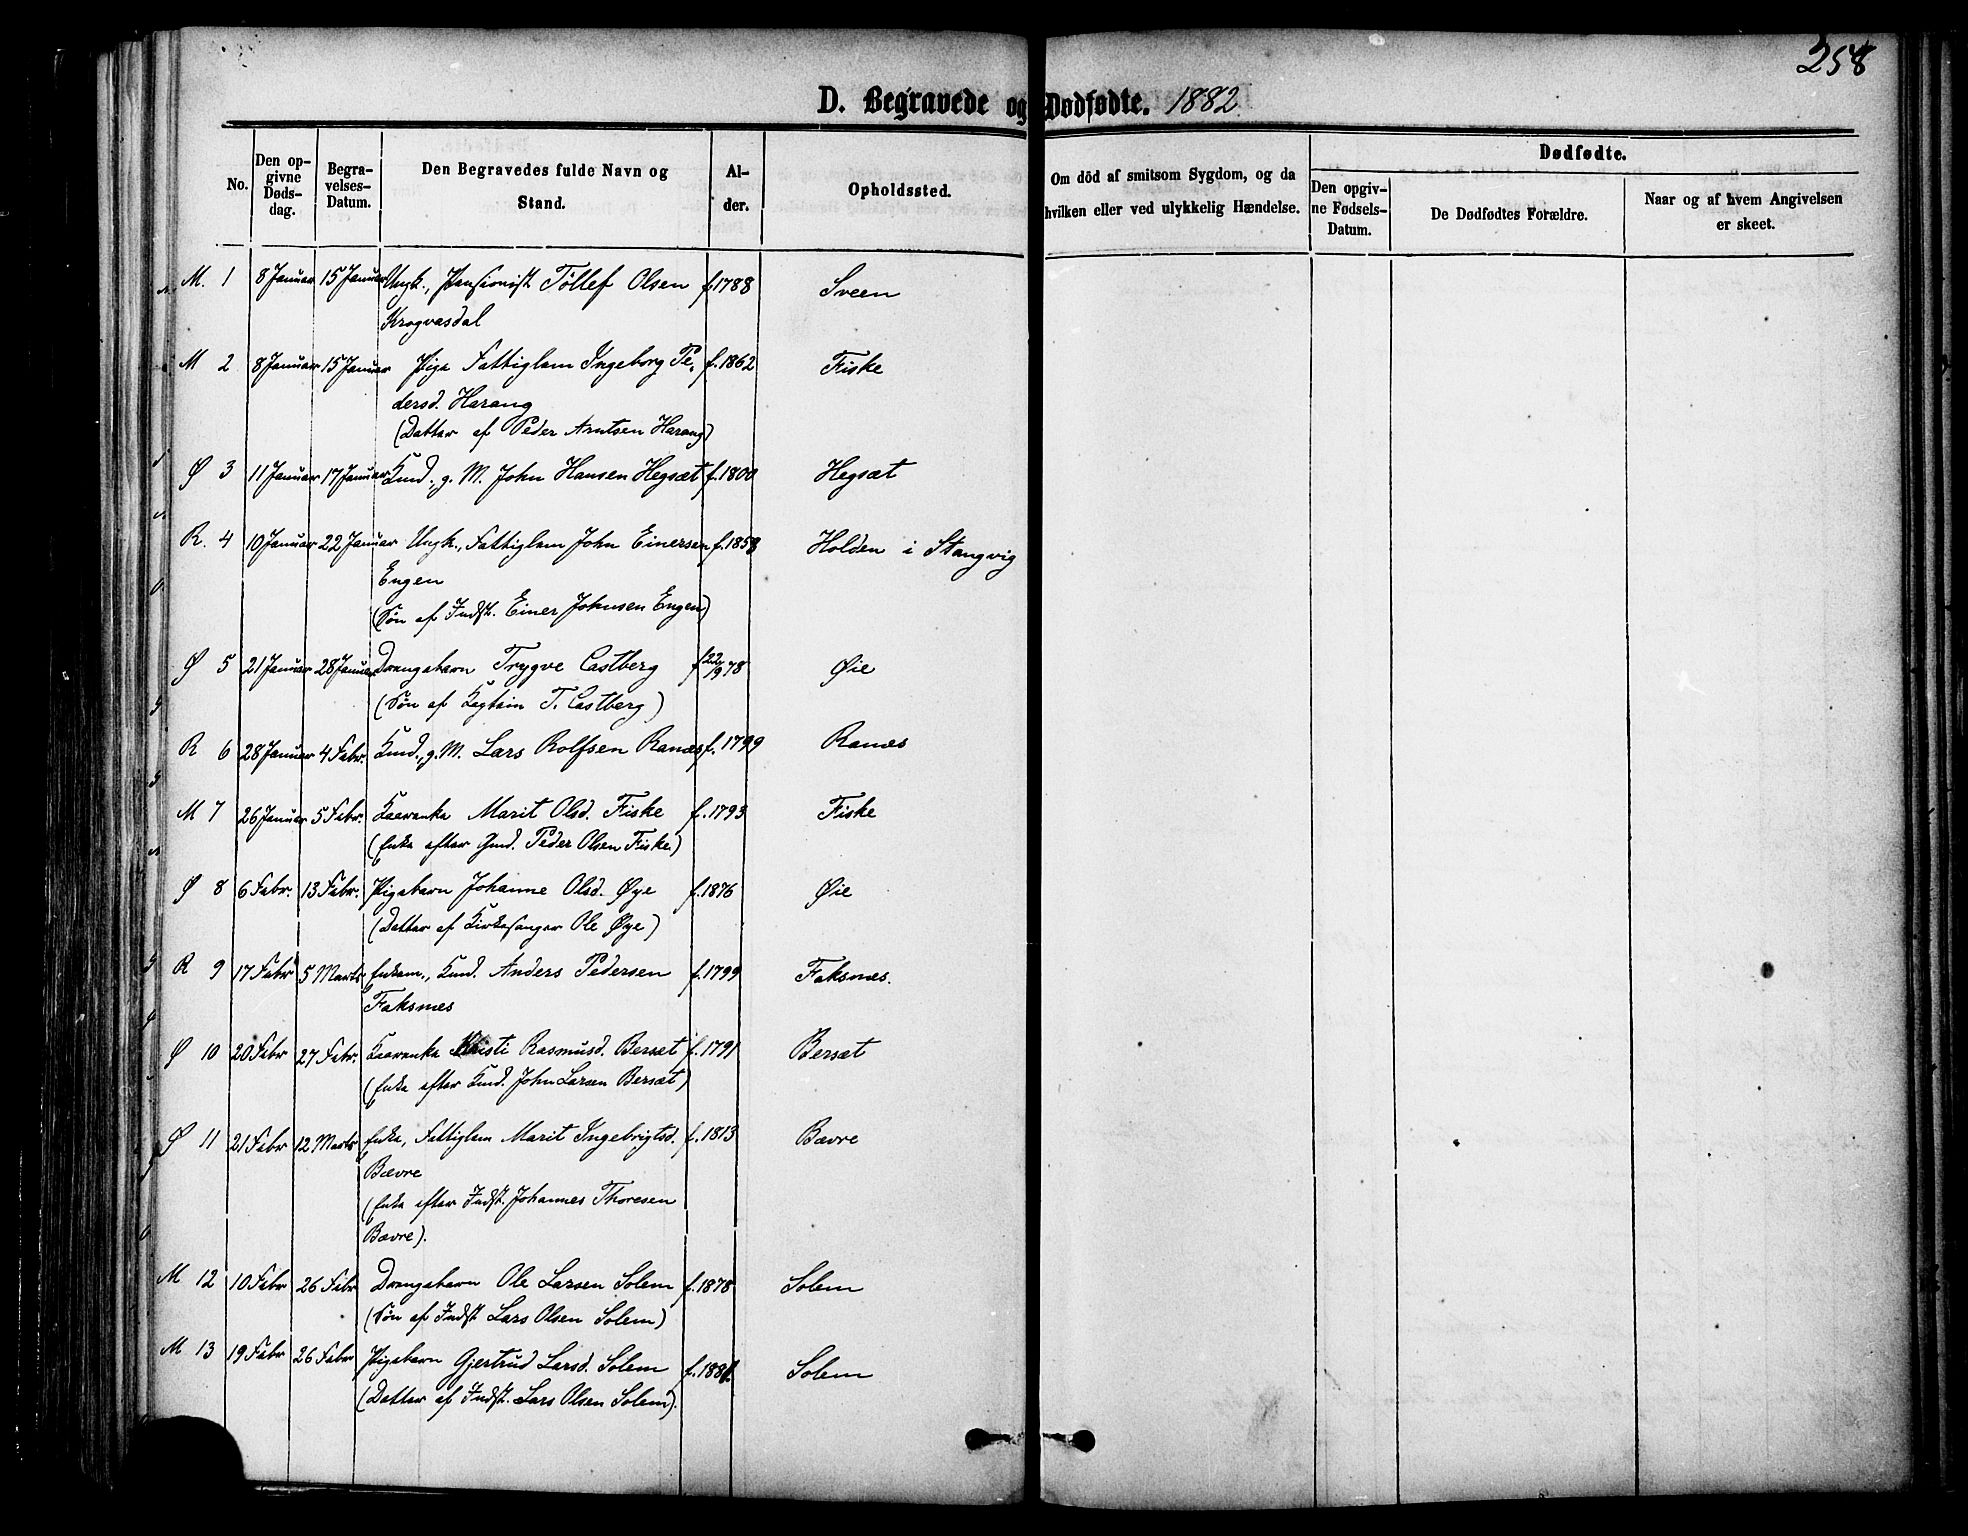 258
D. Begravede og Dødfødte. 1882
No.
Den opgivne Dødsdag.
Begravelses-Datum.
Den Begravedes fulde Navn og Stand.
Alder.
Opholdssted.
Om död af smitsom Sygdom, og da hvilken eller ved ulykkelig Hændelse.
Dødfødte.
Den opgivne Fødsels-Datum.
De Dødfødtes Forældre.
Naar og af hvem Angivelsen er skeet.
M. 1 8 Januar 15 Januar Ungk., Pensionist Tøllef Olsen f. 1788 Sveen
Krogvasdal
M 2 8 Januar 15 Januar Pige Fattiglem Ingeborg Pe- f. 1862 Fiske
dersd. Harang
(Datter af Peder Arntsen Harang)
Ø 3 11 Januar 17 Januar Kaard., g. M. John Hansen Hegsæt f. 1800 Hegsæt
R. 4 10 Januar 22 Januar Ungk., Fattiglem John Einersen f. 1858 Holden i Stangvig
Engen
(Søn af Indst. Einer Johnsen Engen)
Ø 5 21 Januar 28 Januar Drengebarn Trygve Castberg f 22/9 78 Øie
(Søn af Kaptein T. Castberg)
R 6 28 Januar 4 Febr. g. M. Lars Rolfsen Ranæs f. 1799 Ranæs
M 7 26 Januar 5 Febr. Kaarenke Marit Olsd. Fiske f. 1793 Fiske
(Enke efter Gmd. Peder Olsen Fiske)
Ø 8 6 Febr. 13 Febr. Pigebarn Johanne Olsd. Øye f. 1876 Øie
(Datter af Kirkesanger Ole Øye)
R 9 17 Febr 5 Marts Enkem., Anders Pedersen f. 1799 Faksnes.
Faksnes
Ø 10 20 Febr 27 Febr. Kaarenke Kristi Rasmusd. Bersæt f. 1791 Bersæt
(Enke efter John Larsen Bersæt)
Ø 11 21 Febr 12 Marts Enke, Fattiglem Marit Ingebrigtsd. f. 1813 Bævre
Bævre
(Enke efter Indst. Johannes Thoresen
Bævre).
M 12 10 Febr 26 Febr Drengebarn Ole Larsen Solem f. 1878 Solem
(Søn af Indst Lars Olsen Solem)
M 13 19 Febr 26 Febr Pigebarn Gjertrud Larsd. Solem f. 1881. Solem
(Datter af Indst. Lars Olsen Solem).